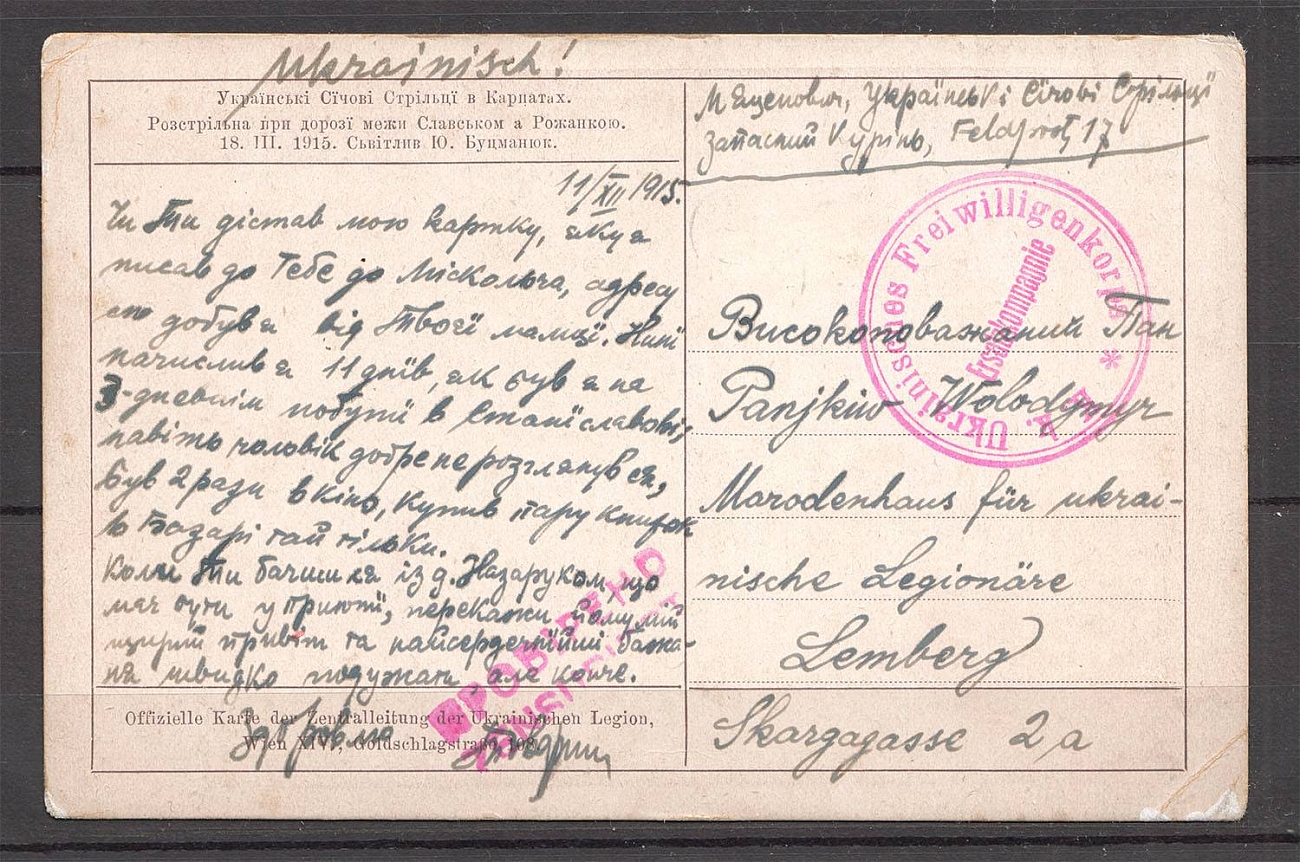 Ukrainisch!
Українські Січові Стрільці в Карпатах.
Розстрільна при дорозї межи Славськом а Рожанкою.
18. III. 1915. Сьвітлив Ю. Буцманюк.
11/XII 1915.
Чи Ти дістав мою картку, яку я
писав до Тебе до Мíскольча, адресу
добув я від Твоєї мамцї. Нинї
начислив я 11 днїв, як був я на
3-дневнім побутї в Станїславові,
навіть чоловік добре не розглянув ся,
був 2 рази в кіно, купив пару книжок
в базарі тай тільки.
Коли Ти бачиш ся із д. Назаруком, що
має бути у Приютї, перекажи йому мій
щирий привіт та найсердечнїйші бажа-
ня швидко подужати, але конче.
Здоровлю
Offizielle Karte der Zentralleitung der Ukrainischen Legion,
Wien XIV., Goldschlagstraße 108.
ПРОВІРЕНО
ZENSURIERT
М Яценович, Українські Січові Стрільці
Запасний Курінь, Feldpost 17
K. k. Ukrainisches Freiwilligenkorps *
Ersatzkompagnie
Високоповажаний Пан
Panjkiw Wolodymyr
Marodenhaus für ukrai-
nische Legionäre
Lemberg
Skargagasse 2a